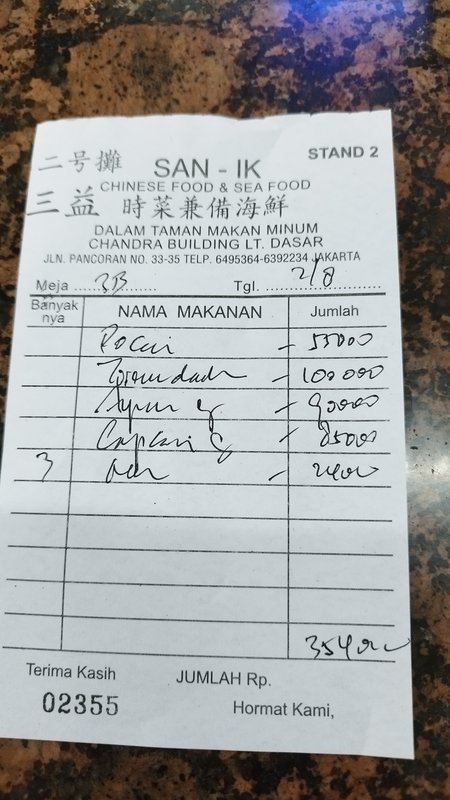 二号攤
SAN - IK
STAND 2
CHINESE FOOD & SEA FOOD
三益 時菜兼備海鮮
DALAM TAMAN MAKAN MINUM
CHANDRA BUILDING LT. DASAR
JLN. PANCORAN NO. 33-35 TELP. 6495364-6392234 JAKARTA
Meja ....3B....... Tgl. ......2/8......
Banyak nya NAMA MAKANAN Jumlah
- 55000
- 100000
- 90000
- 85000
3 - 24000
354000
Terima Kasih JUMLAH Rp.
02355 Hormat Kami,